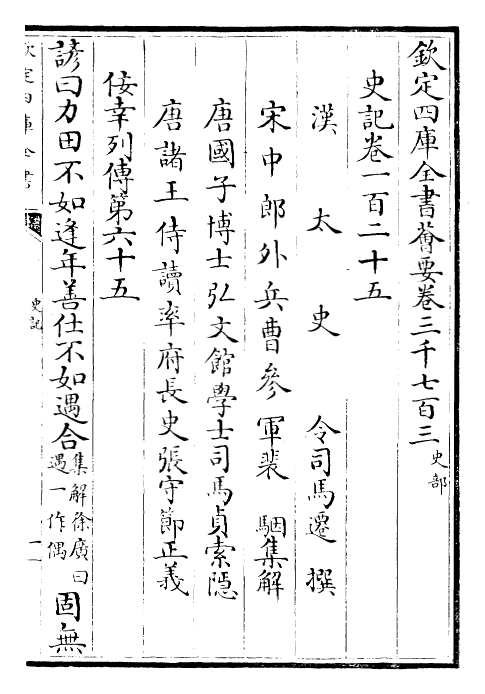 欽定四庫全書薈要卷三千七百三史部
史記卷一百二十五
漢太史令司馬遷撰
宋中郎外兵曹參軍裴駰集解
唐國子博士弘文館學士司馬貞索隱
唐諸王侍讀率府長史張守節正義
佞幸列傳第六十五
諺曰力田不如逢年善仕不如遇合集解徐廣曰遇一作偶固無
欽定四庫全書
史記
一